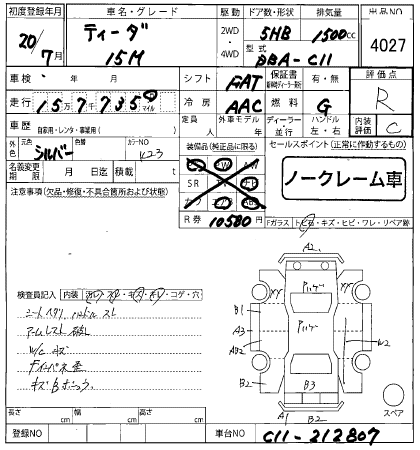 初度登録年月 車名・グレード 駆動 ドア数・形状 排気量 出品NO
20/7月 ティーダ 15M 2WD・4WD 5HB 1500cc 4027
型式 DBA-C11
車検 年 月 シフト FAT 保証書 有・無 評価点 R
走行 157,735 km マイル 冷房 AAC 燃料 G
車歴 自家用・レンタ・事業用( ) 定員 人 外車モデル 年 ディーラー 並行 ハンドル 左・右 内装評価 C
外色 元色 シルバー 色替 カラーNO K23 装備品(純正品に限る) セールスポイント(正常に作動するもの)
名義変更期限 月 日迄 積載 t SR ノークレーム車
注意事項(欠品・修復・不具合箇所および状態)
R券 10580円 Fガラス トビ石・キズ・ヒビ・ワレ・リペア跡
検査員記入 内装 汚れ・スレ・キズ・キレ・コゲ・穴
シートヘタリ ハンドルスレ
アームレスト破れ
W/C キズ
キズBボコ
A2
XY XY
B1 A3 AB2 B2
W2
B3
A1 B2
スペア
長さ cm 幅 cm 高さ cm
登録NO 車台NO C11-212807